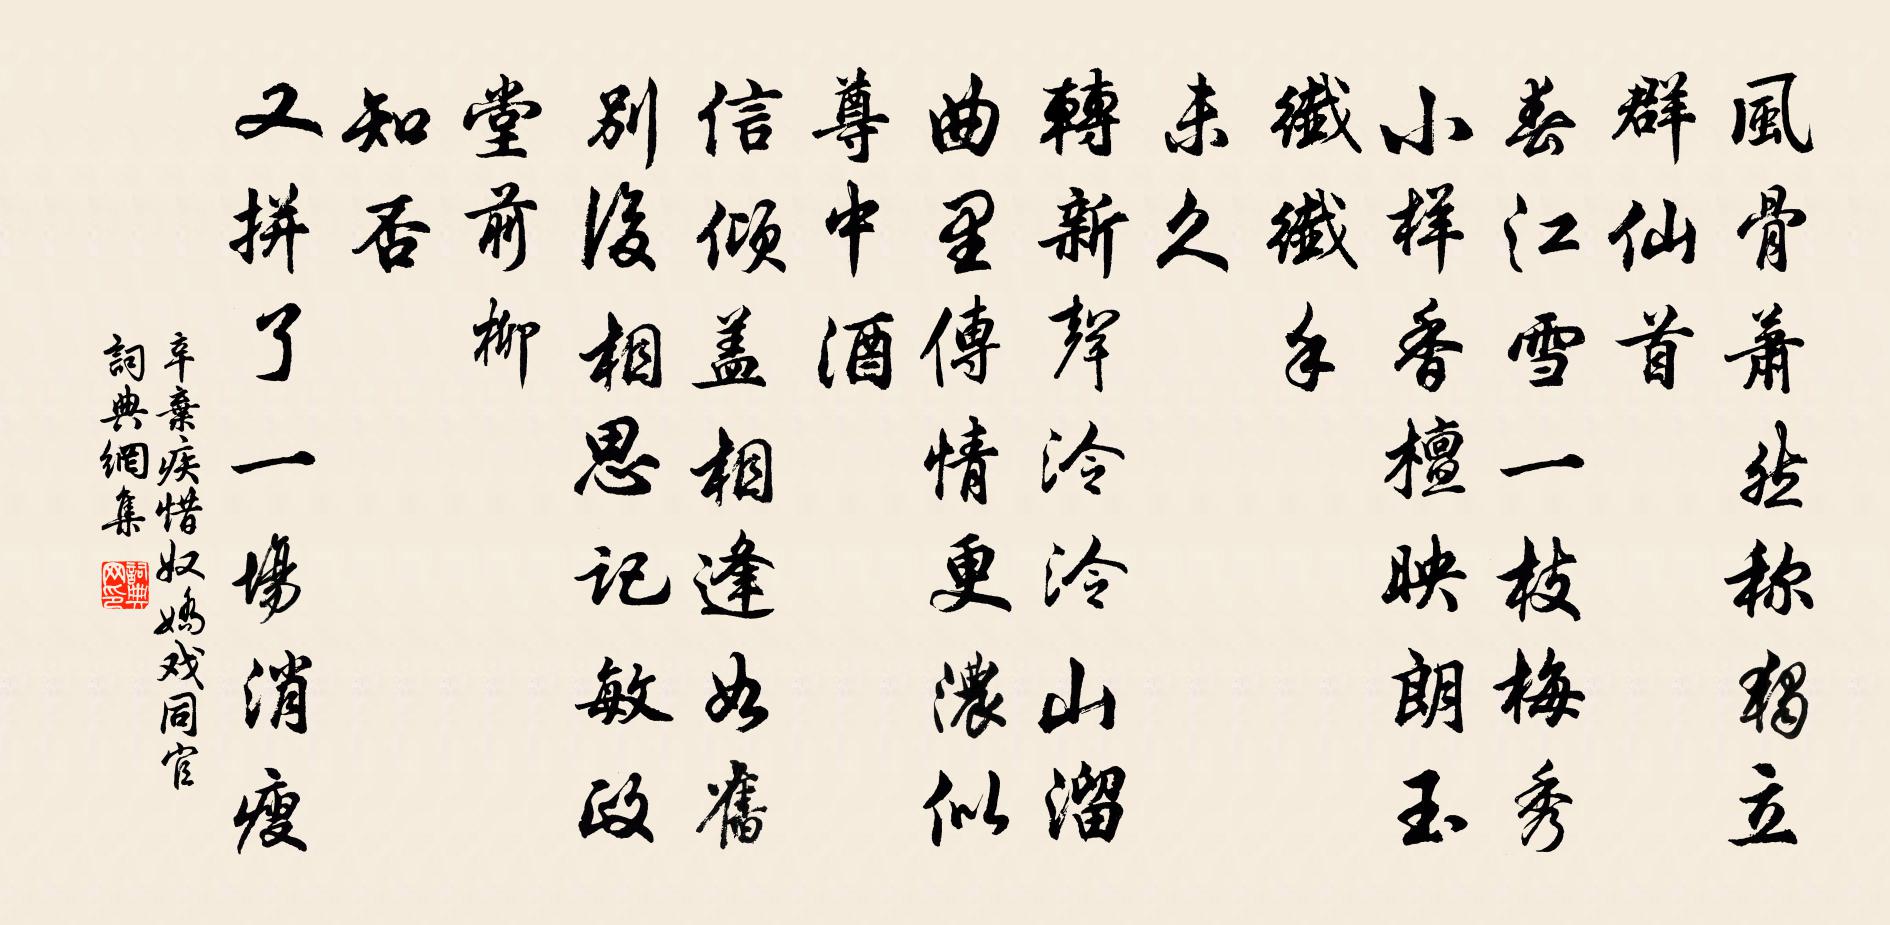 風骨蕭然称獨立
群仙首
春江雪一枝梅秀
小样香檀映朗玉
纖纖手
未久
轉新聲泠泠山溜
曲里傳情更濃似
尊中酒
信倾盖相逢如舊
别後相思記敏政
堂前柳
知否
又拼了一場消瘦
辛棄疾惜奴嬌戏同官
詞典網集
詞典网印